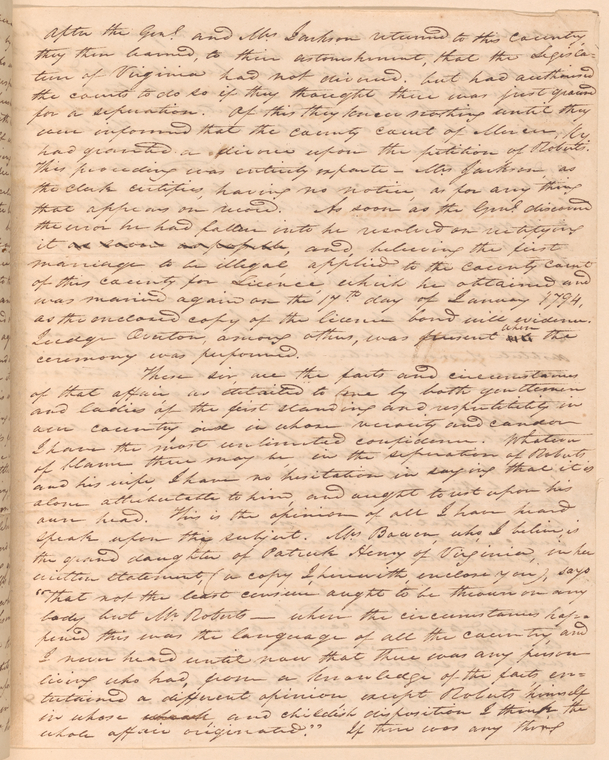 After the Genl. and Mrs Jackson returned to this country
they then learned, to their astonishment, that the Legisla-
ture of Virginia had not divorced, but had authorised
the courts to do so if they thought there was just ground
for a seperation. Of this they knew nothing until they
were informed that the county court of Mercer, Ky.
had granted a divorce upon the petition of Roberts.
This proceeding was entirely exparte – Mrs Jackson as
the clerk certifies, having no notice, as for any thing
that appears on record. As soon as the Genl discovered
the error he had fallen into he resolved on rectifying
it as soon as possible, and, believing the first
marriage to be illegal, applied to the county court
of this county for Licence which he obtained and
was married again on the 17th day of January 1794,
as the enclosed copy of the licence bond will evidence.
Judge Overton, among others, was present when the
ceremony was performed.
These sir, are the facts and circumstances
of that affair as detailed to me by both gentlemen
and ladies of the first standing and respectibility in
our country and in whose veracity and candor
I have the most unlimited confidence. Whatever
of blame there may be in the seperation of Roberts
and his wife I have no hesitation in saying that it is
alone attributable to him, and ought to rest upon his
own head. This is the opinion of all I have heard
speak upon the subject. Mrs Bowen, who I believe is
the grand daughter of Patrick Henry of Virginia, in her
written statement (a copy I, herewith, enclose you), says
"That not the least censure ought to be thrown on any
body but Mr Roberts – when the circumstances hap-
pened this was the language of all the country and
I never heard until now that there was any person
living who had, from a knowledge of the facts en-
tertained a different opinion except Roberts himself
in whose and childish disposition I think the
whole affair originated." If there was any thing